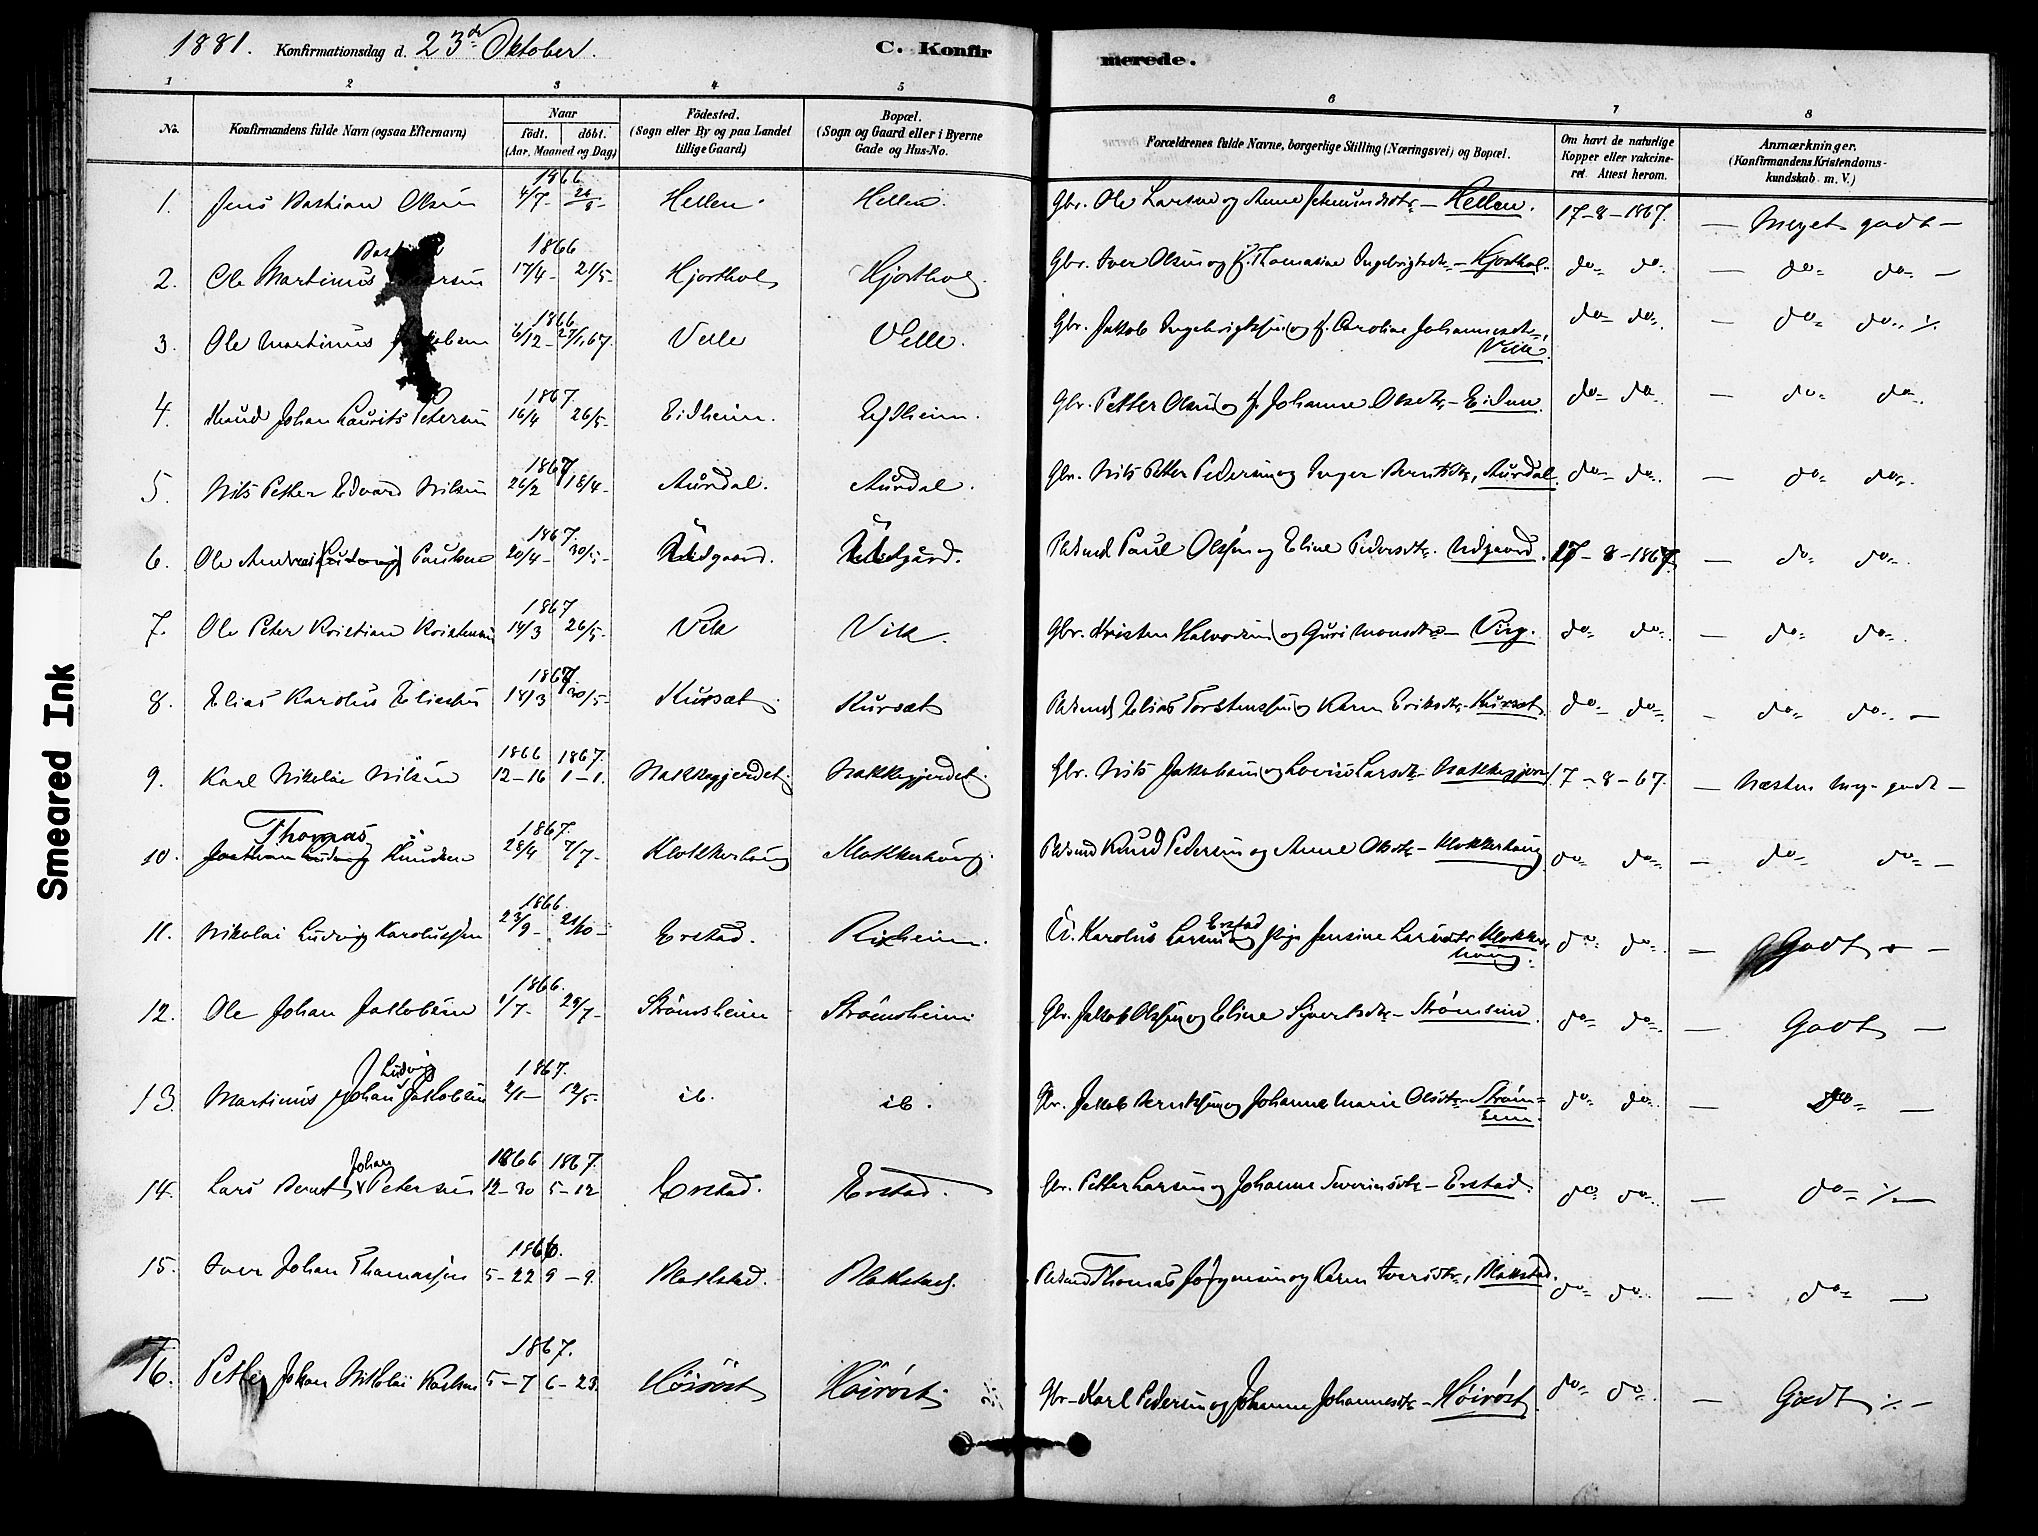 1881. Konfirmationsdag d. 23de Oktober. C. Konfirmerede.
1 2 3 4 5 6 7 8
No. Konfirmandens fulde Navn (ogsaa Efternavn) Naar født. døbt. (Aar, Maaned og Dag) Fødested. (Sogn eller By og paa Landet tillige Gaard) Bopæl. (Sogn og Gaard eller i Byerne Gade og Hus-No. Forældrenes fulde Navne, borgerlige Stilling (Næringsvei) og Bopæl. Om havt de naturlige Kopper eller vakcineret. Attest herom. Anmærkninger. (Konfirmandens Kristendomskundskab m. V.)
1866
1. Jens Bastian Olsen 4/7- Hellen. Hellen. Gbr. Ole Larsen og Anne - Hellen. 17-8-1867. - Meget godt -
1866
2. Ole Martinus 17/4- 21/5- Hjorthol Hjorthol. Gbr. Iver Olsen og Thomasine Ingebrigtsdtr - Hjorthol. do- do- - do- do- -
1866
3. Ole Martinus 6/12- 27/1,67. Velle Velle. Gbr. Jakob Ingebrigtsen og Caroline Johannesdtr, do- do- - do- do- %
Velle.
1867.
4. Knud Johan Laurits Petersen 16/4 26/5- Eidheim. Ejdheim. Gbr. Petter Olsen og Johanne Olsdtr - Eidem. do- do- - do- do-
1867
5. Nils Petter Edvard Nilsen 26/2 18/4- Aurdal. Aurdal. Gbr. Nils Petter Pedersen og Inger Berntsdtr, Aurdal. do- do- - do- do-
1867.
6. Ole Andreas (Ludvig) Paulsen 20/4- 30/5- Pldsmd Paul Olsen og Eline Pedersdtr. Udgaard. 17-8-1867 - do- do-
1867
7. Ole Peter Kristian Kristensen 14/3 26/5- Vik Vik. Gbr. Kristen Halvorsen og Guri Monsdtr - do- do- - do- do-
1867
8. Elias Karolus Eliassen 14/3 30/5- Kursæt. Kursæt Pldsmd Elias Torstensen og Karen Eriksdtr - Kursæt. do- do- - do- do- -
1866 1867.
9. Karl Nikolai Nilsen 12-16 1-1. Nakkegjerdet. Nakkegjerdet. Gbr. Nils Jakobsen og Lovise Larsdtr - Nakkegjerd 17-8-67. - Næsten meg. godt -
Thomas 1867.
10. Ludvig Knudsen 28/4 7/7- Klokkerhaug Klokkerhaug. Pldsmd Knud Pedersen og Anne Olsdtr - Klokkerhaug do- do- - do- do- -
1866.
11. Nikolai Ludvig Karolussen 23/9- 21/10- Erstad. Rixheim. U. Karolus Larsen Erstad og Pige Jensine Larsdtr Klokkerhaug. do- do- - Godt -
1866.
12. Ole Johan Jakobsen 1/7- 29/7- Strømsheim Strømsheim Gbr. Jakob Olsen og Eline Sjvertsdtr - Strømsem. do- do- - Godt -
Ludvig 1867.
13. Martinus Johan Jakobsen 2/1- 12/5- ib. ib. Gbr. Jakob Berntsen og Johanne Marie Olsdtr - Strømsem. do- do- - do- -
Johan 1866 1867.
14. Lars Bernt Petersen 12-30 5-12 Erstad. Erstad. Gbr. Petter Larsen og Johanne Severinsdtr - Erstad. do- do- - do- % -
1866.
15. Iver Johan Thomassen 5-22 9-9. Blakstad. Blakstad. Pldsmd Thomas Jørgensen og Karen Iversdtr, Blakstad. do- do- - do- -
1867.
16. Petter Johan Nikolai Karlsen 5-7 6-23. Høirøst Høirøst. Gbr. Karl Pedersen og Johanne Johannesdtr - Høirøst. do- do- - Godt % -
Smeared Ink